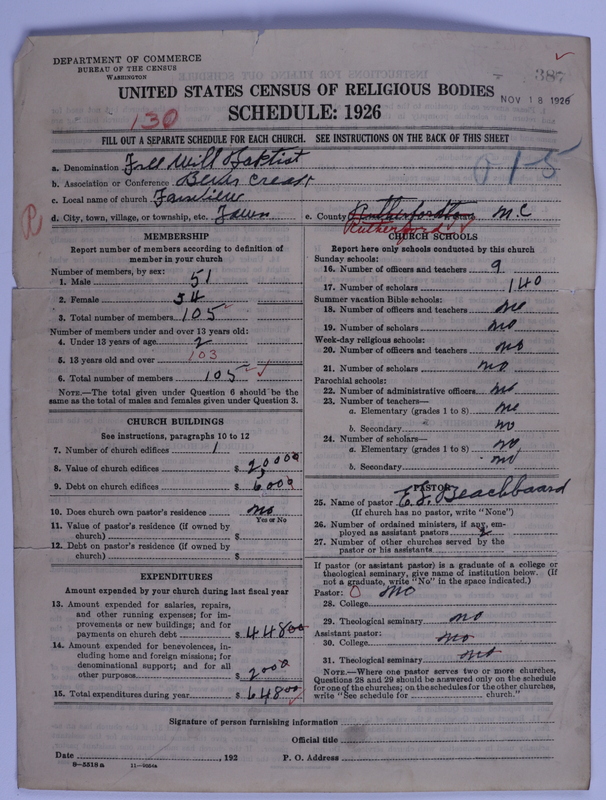 DEPARTMENT OF COMMERCE
BUREAU OF THE CENSUS
WASHINGTON
387
NOV 18 1926
UNITED STATES CENSUS OF RELIGIOUS BODIES
SCHEDULE: 1926
130
FILL OUT A SEPARATE SCHEDULE FOR EACH CHURCH. SEE INSTRUCTIONS ON THE BACK OF THIS SHEET
a. Denomination Free Will Baptist
b. Association or Conference
c. Local name of church
d. City, town, village, or township, etc.
e. County Rutherford N C
MEMBERSHIP
Report number of members according to definition of
member in your church
Number of members, by sex:
1. Male 51
2. Female 54
3. Total number of members 105
Number of members under and over 13 years old:
4. Under 13 years of age 2
5. 13 years old and over 103
6. Total number of members 105
NOTE.—The total given under Question 6 should be the
same as the total of males and females given under Question 3.
CHURCH BUILDINGS
See instructions, paragraphs 10 to 12
7. Number of church edifices 1
8. Value of church edifices $
9. Debt on church edifices $ 6000
10. Does church own pastor's residence no
Yes or No
11. Value of pastor's residence (if owned by
church) $
12. Debt on pastor's residence (if owned by
church) $
EXPENDITURES
Amount expended by your church during last fiscal year
13. Amount expended for salaries, repairs,
and other running expenses; for im-
provements or new buildings; and for
payments on church debt $ 4480
14. Amount expended for benevolences, in-
cluding home and foreign missions; for
denominational support; and for all
other purposes $ 2000
15. Total expenditures during year $ 6480
CHURCH SCHOOLS
Report here only schools conducted by this church
Sunday schools:
16. Number of officers and teachers 9
17. Number of scholars 140
Summer vacation Bible schools:
18. Number of officers and teachers no
19. Number of scholars no
Week-day religious schools:
20. Number of officers and teachers no
21. Number of scholars no
Parochial schools:
22. Number of administrative officers no
23. Number of teachers—
a. Elementary (grades 1 to 8) no
b. Secondary no
24. Number of scholars—
a. Elementary (grades 1 to 8) no
b. Secondary no
PASTOR
25. Name of pastor
(If church has no pastor, write "None")
26. Number of ordained ministers, if any, em-
ployed as assistant pastors
27. Number of other churches served by the
pastor or his assistants
If pastor (or assistant pastor) is a graduate of a college or
theological seminary, give name of institution below. (If
not a graduate, write "No" in the space indicated.)
Pastor: no
28. College
29. Theological seminary no
Assistant pastor:
30. College no
31. Theological seminary no
NOTE.—Where one pastor serves two or more churches,
Questions 28 and 29 should be answered only on the schedule
for one of the churches; on the schedules for the other churches,
write "See schedule for church."
Signature of person furnishing information
Official title
Date , 192 P. O. Address
8—5518a